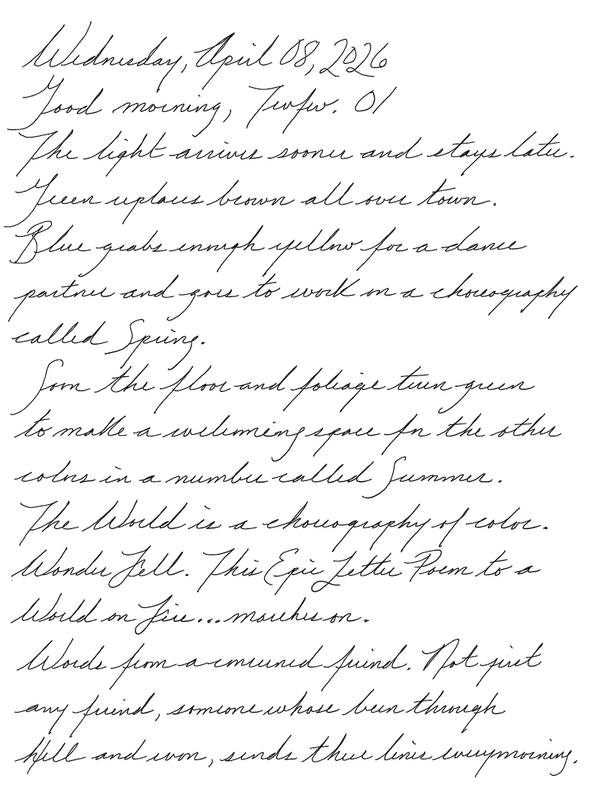 Wednesday, April 08, 2026
Good morning, Twfw. 01
The light arrives sooner and stays later.
Green replaces brown all over town.
Blue grabs enough yellow for a dance
partner and goes to work on a choreography
called Spring.
Soon the floor and foliage turn green
to make a welcoming space for the other
colors in a number called Summer.
The World is a choreography of color.
Wonder Fell. This Epic Letter Poem to a
World on Fire... marches on.
Words from a concerned friend. Not just
any friend, someone whose been through
hell and won, sends these lines every morning.